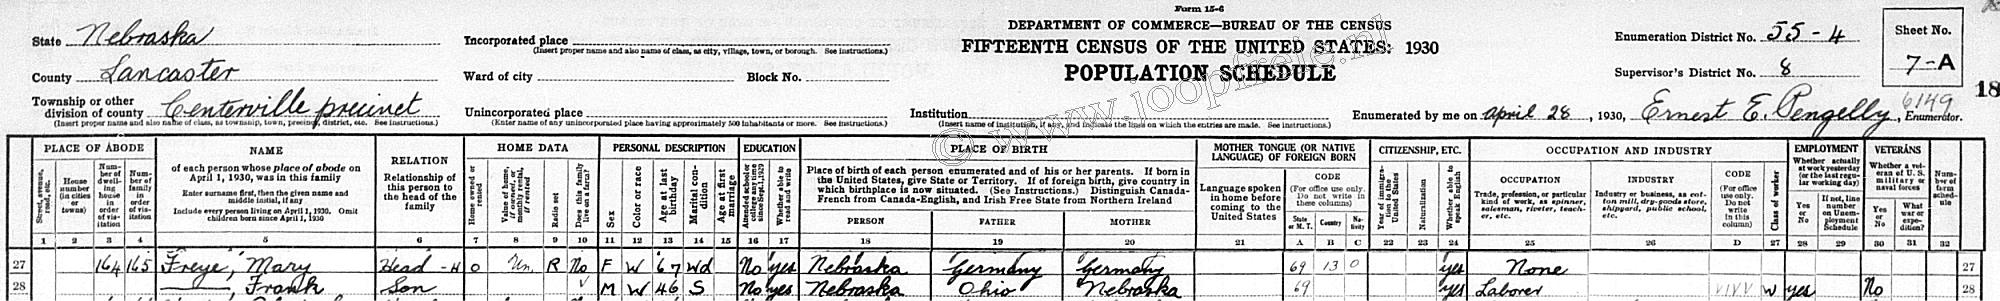 Form 15-6
DEPARTMENT OF COMMERCE—BUREAU OF THE CENSUS
FIFTEENTH CENSUS OF THE UNITED STATES: 1930
POPULATION SCHEDULE
State Nebraska
County Lancaster
Township or other division of county Centerville precinct
(Insert proper name and also name of class, as township, town, precinct, district, etc. See instructions.)
Incorporated place
(Insert proper name and also name of class, as city, village, town, or borough. See instructions.)
Ward of city Block No.
Unincorporated place
(Enter name of any unincorporated place having approximately 500 inhabitants or more. See instructions.)
Institution
(Insert name of institution, if any, and indicate the lines on which the entries are made. See instructions.)
Enumeration District No. 55-4
Supervisor's District No. 8
Sheet No.
7-A
18
6149
Enumerated by me on April 28, 1930, Ernest E. Pengelly, Enumerator.
© www.joopfreije.nl
PLACE OF ABODE
Street, avenue, road, etc.
House number (in cities or towns)
Number of dwelling house in order of visitation
Number of family in order of visitation
NAME
of each person whose place of abode on April 1, 1930, was in this family
Enter surname first, then the given name and middle initial, if any
Include every person living on April 1, 1930. Omit children born since April 1, 1930
RELATION
Relationship of this person to the head of the family
HOME DATA
Home owned or rented
Value of home, if owned, or monthly rental, if rented
Radio set
Does this family live on a farm?
PERSONAL DESCRIPTION
Sex
Color or race
Age at last birthday
Marital condition
Age at first marriage
EDUCATION
Attended school or college any time since Sept. 1, 1929
Whether able to read and write
PLACE OF BIRTH
Place of birth of each person enumerated and of his or her parents. If born in the United States, give State or Territory. If of foreign birth, give country in which birthplace is now situated. (See Instructions.) Distinguish Canada-French from Canada-English, and Irish Free State from Northern Ireland
PERSON FATHER MOTHER
MOTHER TONGUE (OR NATIVE LANGUAGE) OF FOREIGN BORN
Language spoken in home before coming to the United States
CODE
(For office use only. Do not write in these columns)
State or M. T. Country Nativity
CITIZENSHIP, ETC.
Year of immigration to the United States
Naturalization
Whether able to speak English
OCCUPATION AND INDUSTRY
OCCUPATION
Trade, profession, or particular kind of work, as spinner, salesman, riveter, teacher, etc.
INDUSTRY
Industry or business, as cotton mill, dry-goods store, shipyard, public school, etc.
CODE
(For office use only. Do not write in this column)
Class of worker
EMPLOYMENT
Whether actually at work yesterday (or the last regular working day)
Yes or No
If not, line number on Unemployment Schedule
VETERANS
Whether a veteran of U. S. military or naval forces
Yes or No
What war or expedition?
Number of farm schedule
1 2 3 4 5 6 7 8 9 10 11 12 13 14 15 16 17 18 19 20 21 A B C 22 23 24 25 26 D 27 28 29 30 31 32
27 164 165 Freye, Mary Head-H O Un. R No F W 67 Wd No yes Nebraska Germany Germany 69 13 0 yes None 27
28 ——, Frank Son V M W 46 S No yes Nebraska Ohio Nebraska 69 yes Laborer VIVV W yes No 28